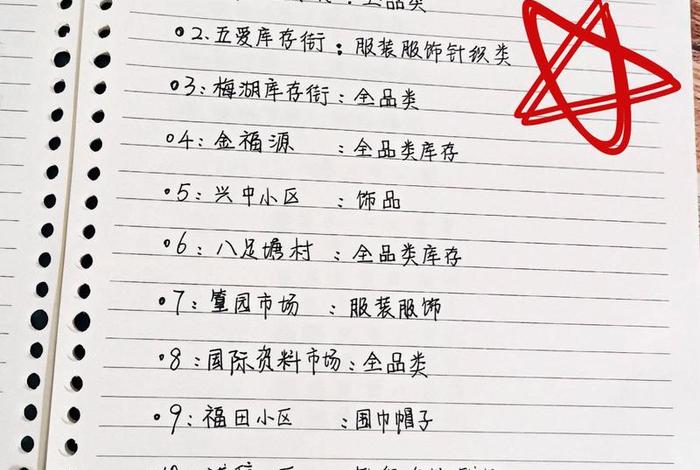 :全品类
02.五爱库存街:服装服饰针织类
03:梅湖库存街:全品类
04:金福源:全品类库存
05:兴中小区:饰品
06:八足塘村:全品类库存
07:篁园市场:服装服饰
08:国际资料市场:全品类
09:福田小区:围巾帽子